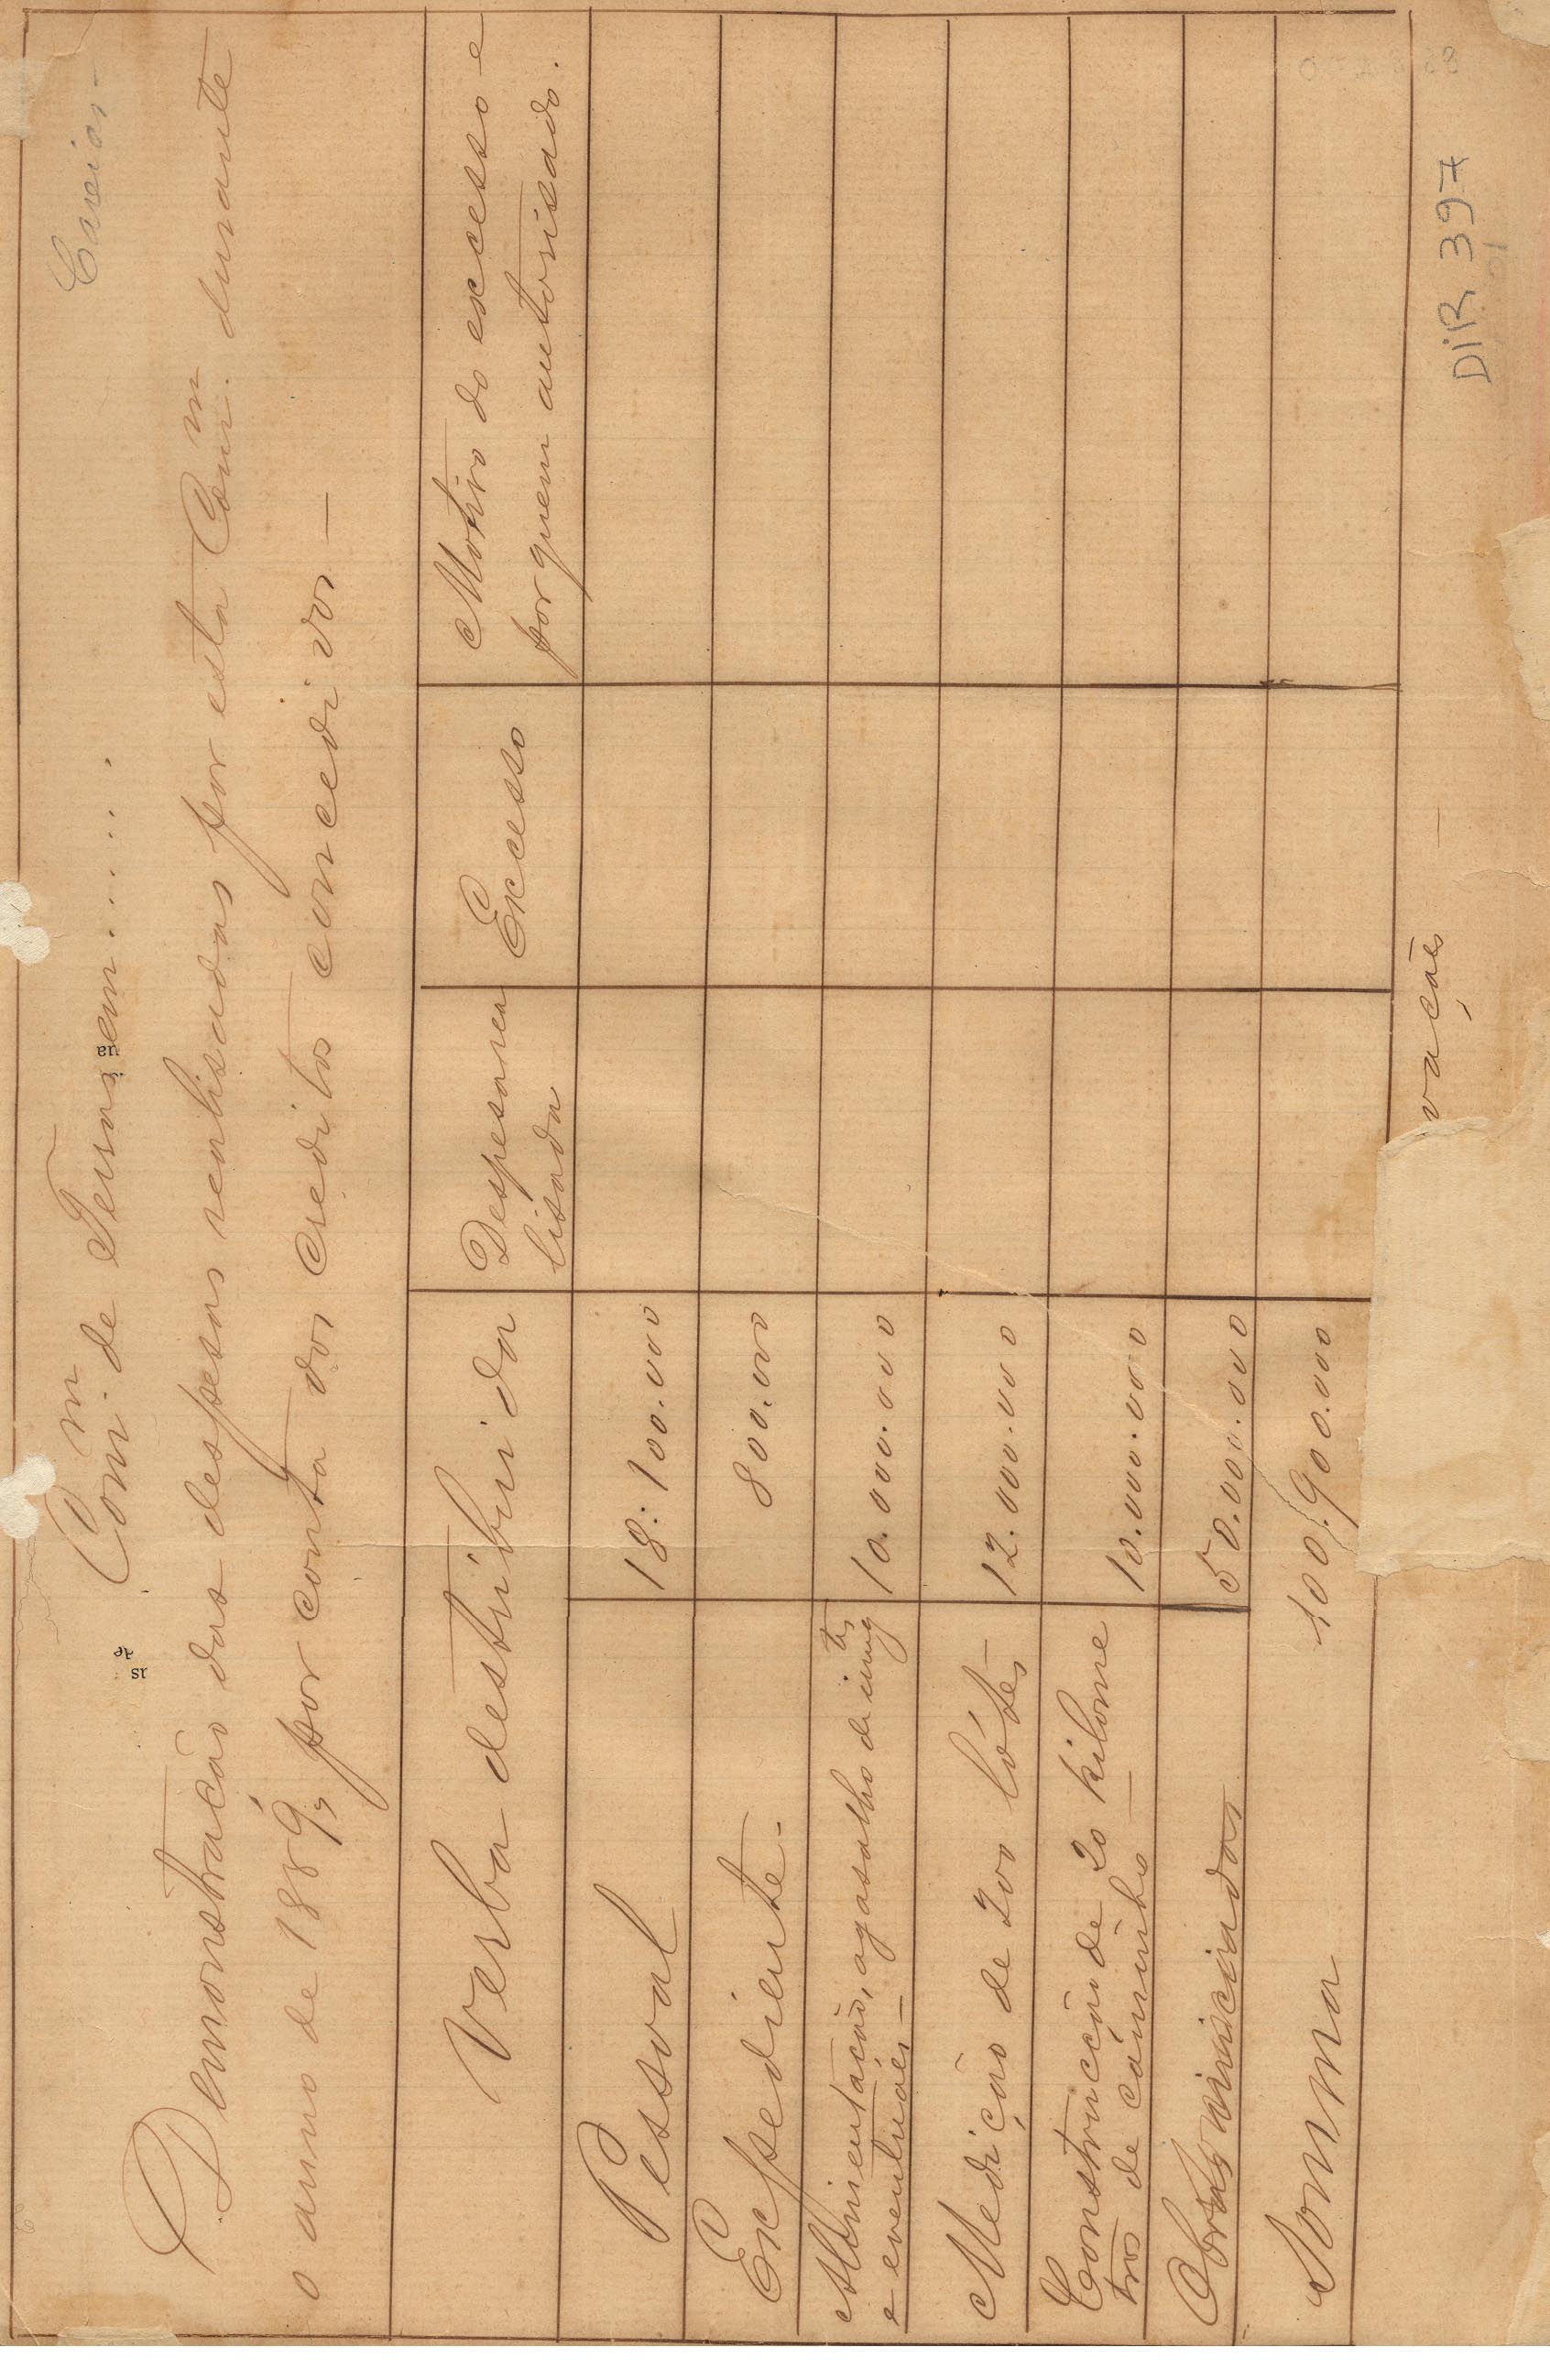 Com.m de Terras em . . . . . .
Demonstração das despesas realisadas por esta Com.m durante
o anno de 1889, por conta dos creditos concedidos —
Verba destribuida
Despesa rea
lisada
Excesso
Motivo do excesso e
por quem autorisado.
Pessoal 18:100.000
Expediente 800.000
Alimentação, agasalho de immig tes
e eventuaes — 10.000.000
Medição de 200 lótes 12.000.000
Construcção de 20 kilome
tros de caminho — 10.000.000
Obras iniciadas 50.000.000
Somma 100.900.000
vações —
DiR 397